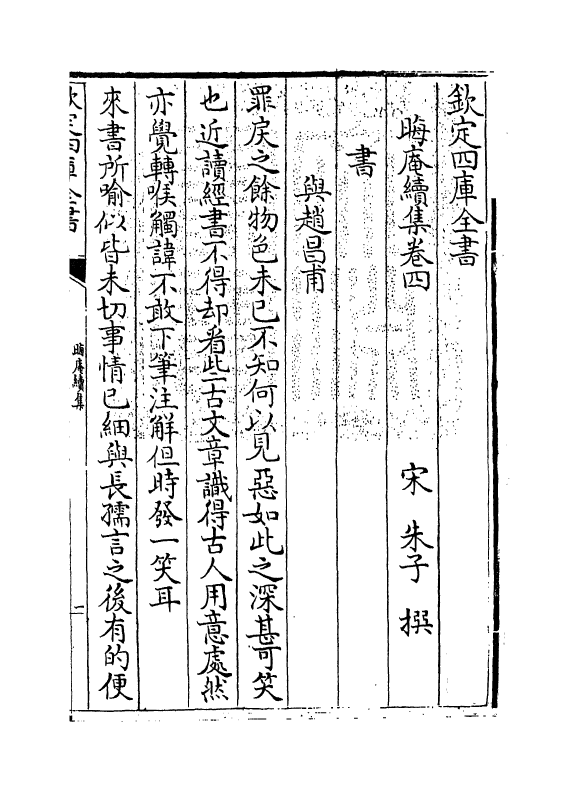 欽定四庫全書
晦庵續集卷四
宋 朱子 撰
書
與趙昌甫
罪戾之餘物色未已不知何以見惡如此之深甚可笑
也近讀經書不得却看些古文章識得古人用意處然
亦覺轉喉觸諱不敢下筆注解但時發一笑耳
來書所喻似皆未切事情已細與長孺言之後有的便
欽定四庫全書
晦庵續集
一